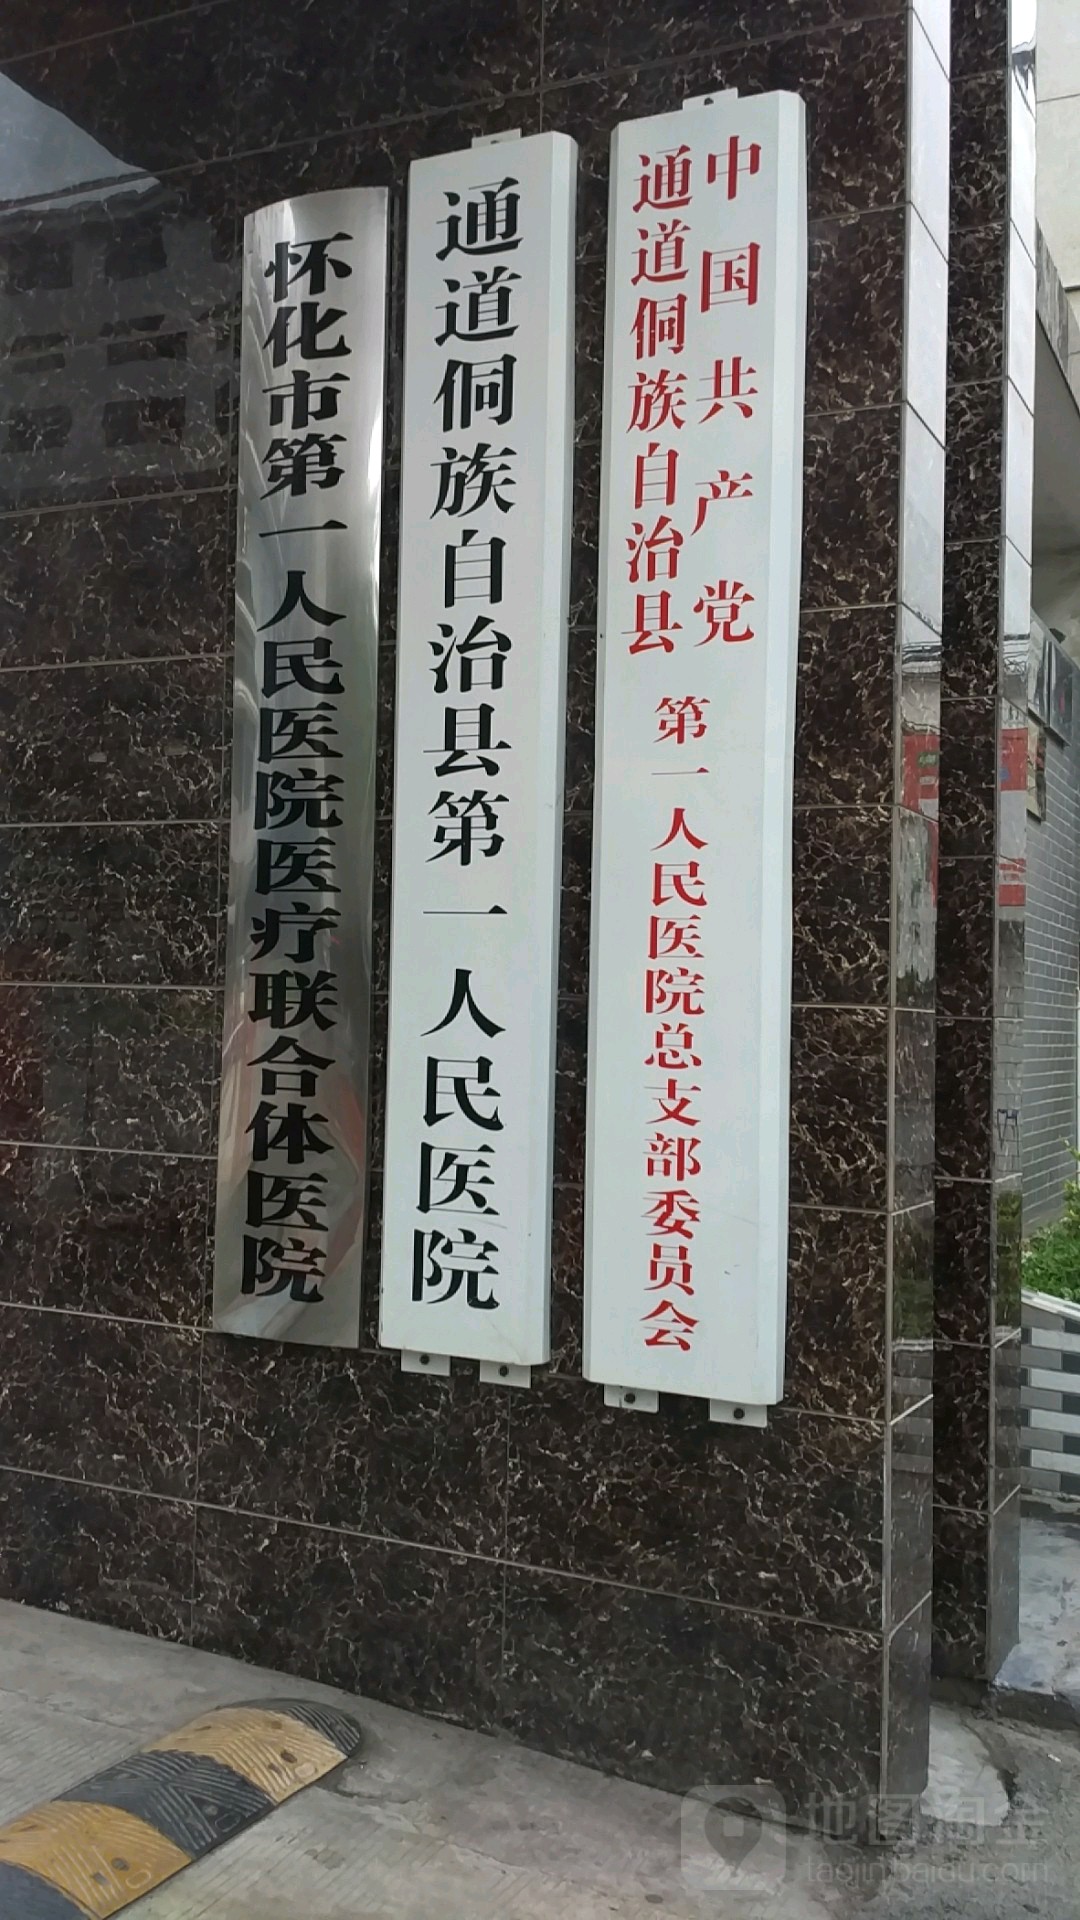 中国共产党
通道侗族自治县
第一人民医院总支部委员会
通道侗族自治县第一人民医院
怀化市第一人民医院医疗联合体医院
地图淘金
taojin.baidu.com